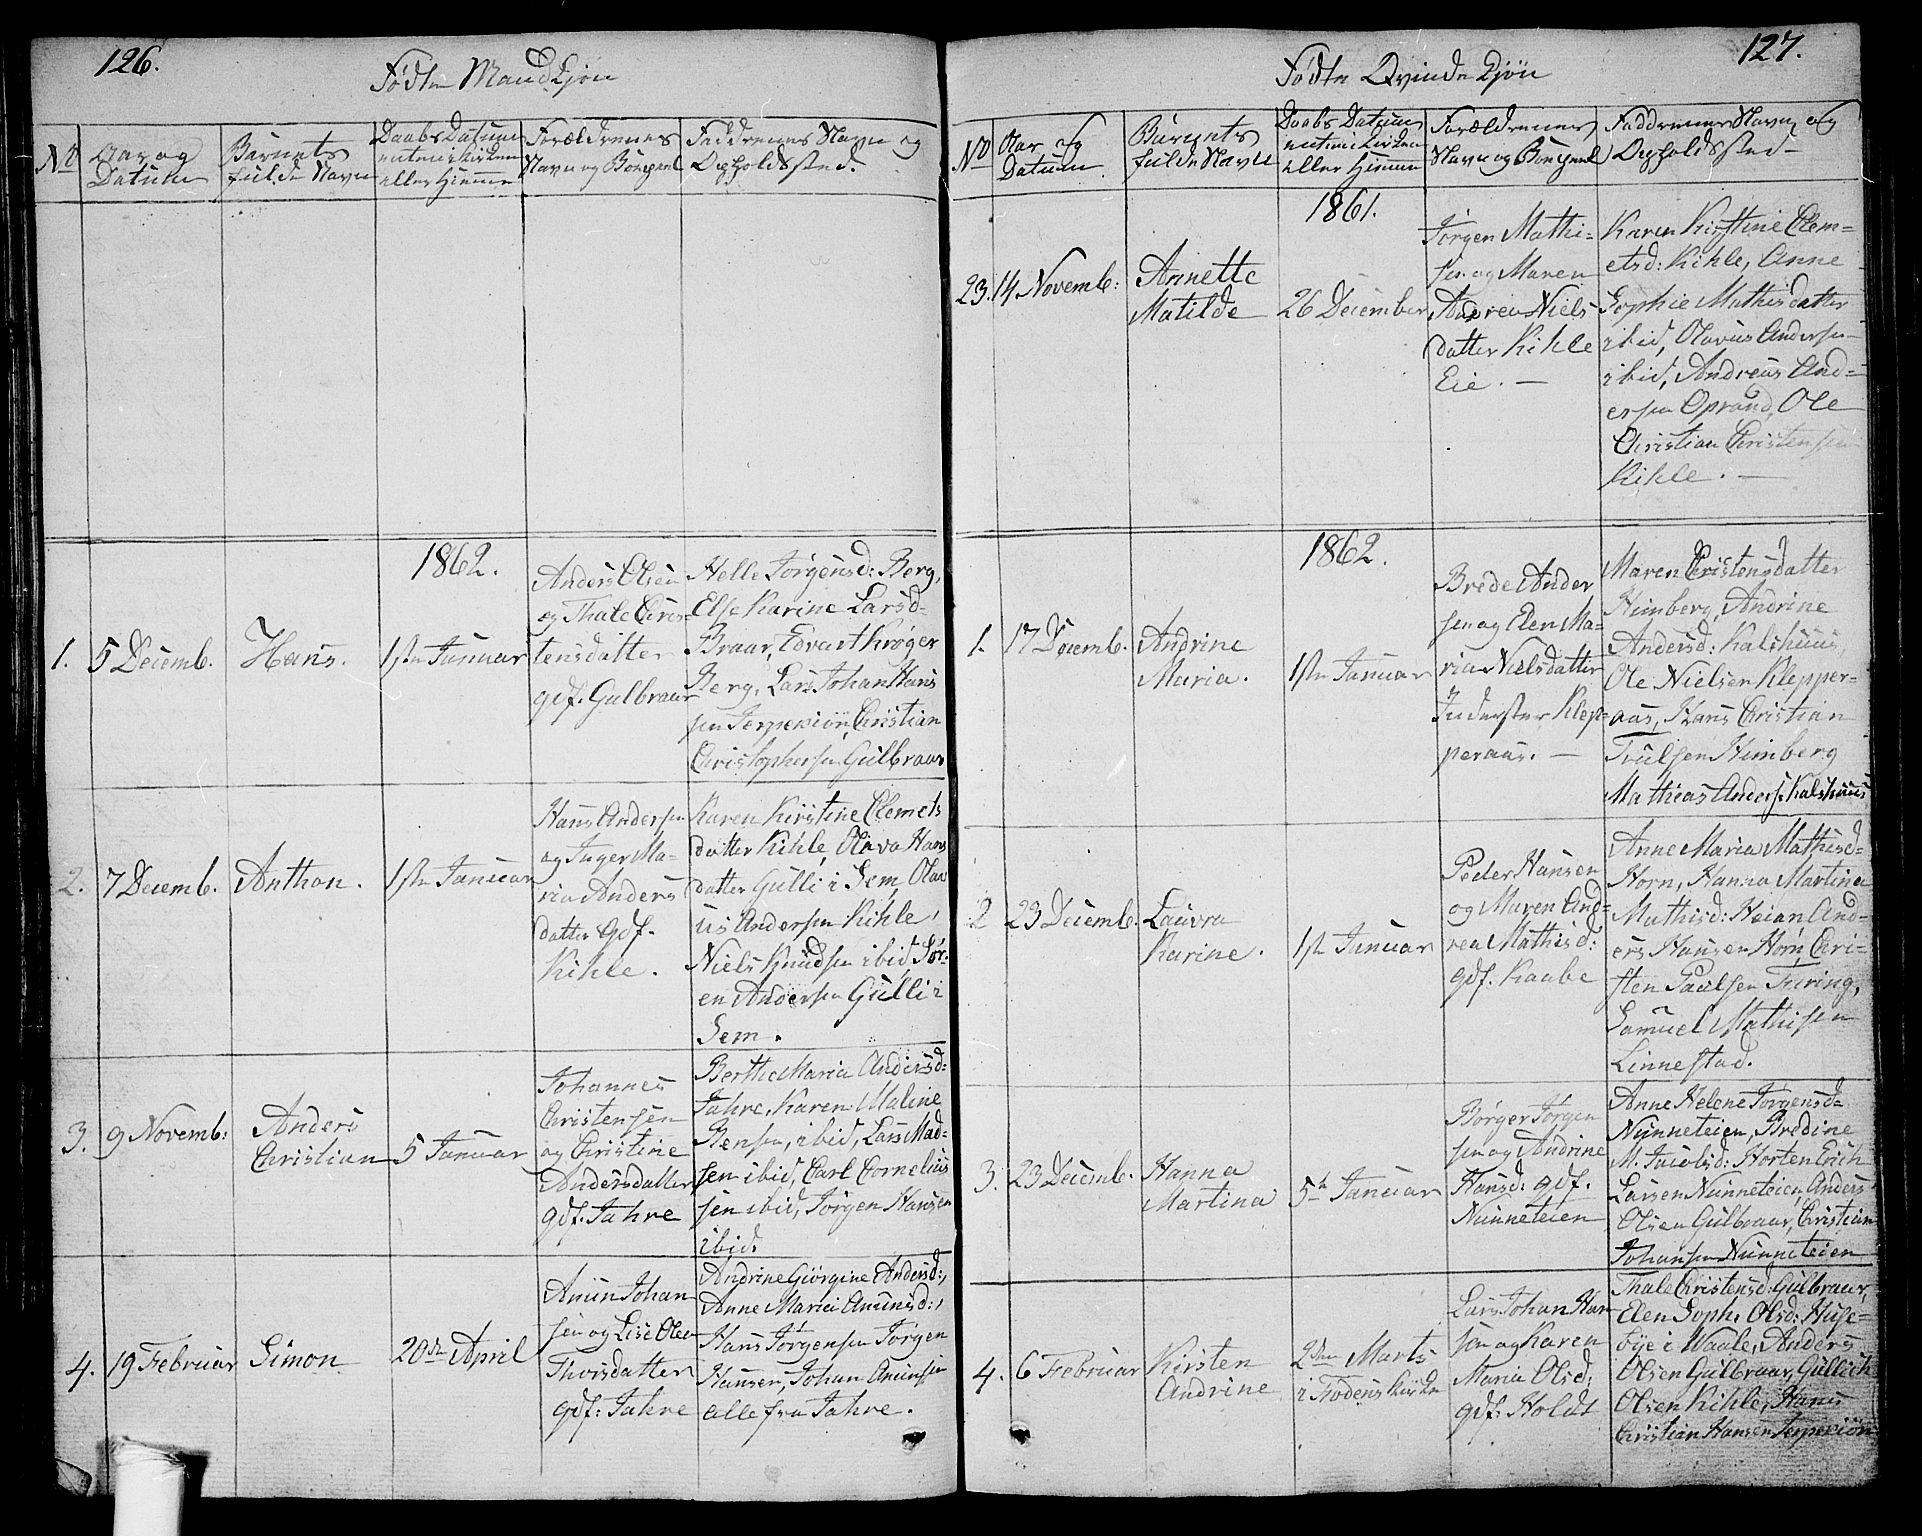 126.
Födte Mandkjön
No
Aar og
Datum
Barnets
fulde Navn
Daabs Datum
enten i Kirken
eller Hjemme
Forældrenes
Navn og Bopæl
Faddrenes Navn og
Opholdssted.
1862.
1.
5 Decemb.
Hans.
1ste Januar
Anders Olsen
og Thale Chris-
tensdatter
gdf. Gulbraar
Helle Jörgensd: Berg,
Else Karine Larsd-
Braar, Edvart Kröger
Berg, Lars Johan Hans
sen Jerpekiön, Christian
Christophersen Gulbraar
2.
7 Decemb.
Anthon.
1ste Januar
Hans Andersen
og Inger Ma-
ria Anders
datter gdf.
Kihle.
Karen Kirstine Clemets
datter Kihle, Olava Hans
datter Gulli i Sem, Olav
us Andersen Kihle,
Niels Knudsen ibid Sör-
en Andersen Gulli i
Sem.
3.
9 Novemb:
Anders
Christian
5 Januar
Johannes
Christensen
og Christine
Andersdatter
gdf. Jahre
Berthe Maria Andersd-
Jahre, Karen Maline
Bensen, ibid, Lars Mad-
sen ibid, Carl Cornelius
sen ibid, Jörgen Hansen
ibid.
4.
19 Februar
Simon
20de April
Amun Johan
sen og Lise Olea
Thorsdatter
gdf: Jahre
Andrine Giörgine Andersd:,
Anne Maria Amunsd:,
Hans Jörgensen Jörgen
Hansen, Johan Amunsen
alle fra Jahre.
127.
Födte Qvindekjön
No
Aar og
Datum
Barnets
fulde Navn
Daabs Datum
enten i Kirken
eller Hjemme
Forældrenes
Navn og Bopæl
Faddrenes Navn og
Opholdssted
1861.
23.
14 Novemb:
Annette
Matilde
26 December
Jörgen Mathi-
sen og Maren
Andrea Niels
datter Kihle
Eie. —
Karen Kirstine Clem-
etsd: Kihle, Anne
Sophie Mathisdatter
ibid, Olavus Andersen
ibid, Andreas And-
ersen Oprand, Ole
Christian Christensen
Kihle. —
1862.
1.
17 Decemb.
Andrine
Maria.
1ste Januar
Brede Ander
sen og Elen Ma-
ria Nielsdatter
Inderster Klep-
peraas. —
Maren Christensdatter
Himberg, Andrine
Andersd: Kalshuus,
Ole Nielsen Klepper-
aas, Hans Christian
Trulsen Himberg
Mathias Anders. Kalshuus
2
23 Decemb.
Lauvra
Karine.
1ste Januar
Peder Hansen
og Maren And-
rea Mathisd:
gdf. Raabe
Anne Maria Mathisd-
Horn, Hanna Martina
Mathisd: Heian And-
ers Hansen Horn, Chri-
sten Paulsen Furing,
Samuel Mathisen
Linnestad.
3.
23 Decemb.
Hanna
Martina
5te Januar
Börger Jörgen
sen og Andrine
Hansd: gdf.
Nunneteien
Anne Helene Jörgensd-
Nunneteien, Bredine
M. Jacobsd: Horten Erich
Larsen Nunneteien, Anders
Olsen Gulbraar, Christian
Johansen Nunneteien
4.
6 Februar
Kirsten
Andrine
2den Marts
i Fodens Kirke
Lars Johan Han
sen og Karen
Maria Olsd:
gdf: Holdt
Thale Christensd: Gulbraar,
Elen Soph. Olsd: Huse-
bye i Waale, Anders
Olsen Gulbraar, Gullich
Olsen Kihle, Hans
Christian Hansen Jerpekiön